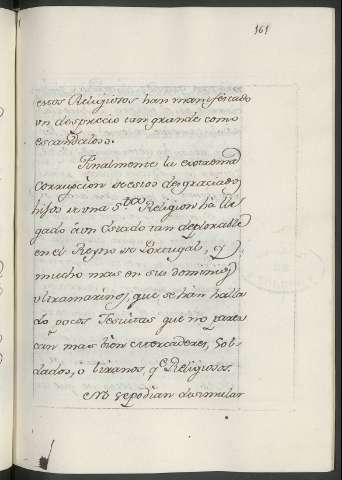 161
estos Religiosos han manifestado
un desprecio tan grande como
escandaloso.
Finalmente la extrema
corrupcion de estos desgraciados
hijos de una s.ta Religion ha lle
gado à un Estado tan deplorable
en el Reyno de Portugal, y
mucho mas en sus dominios
ultramarinos, que se han halla
do pocos Jesuitas que no pares
can mas bien mercaderes, Sol-
dados, ò tiranos, q.e Religiosos.
No se podian disimular